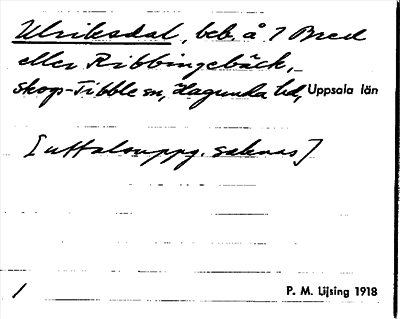 Ulriksdal, beb. å ? Bred
eller Ribbingebäck,
Skogs-Tibble sn, Hagunda hd, Uppsala län
[uttalsuppg. saknas]
1 P. M. Lijsing 1918